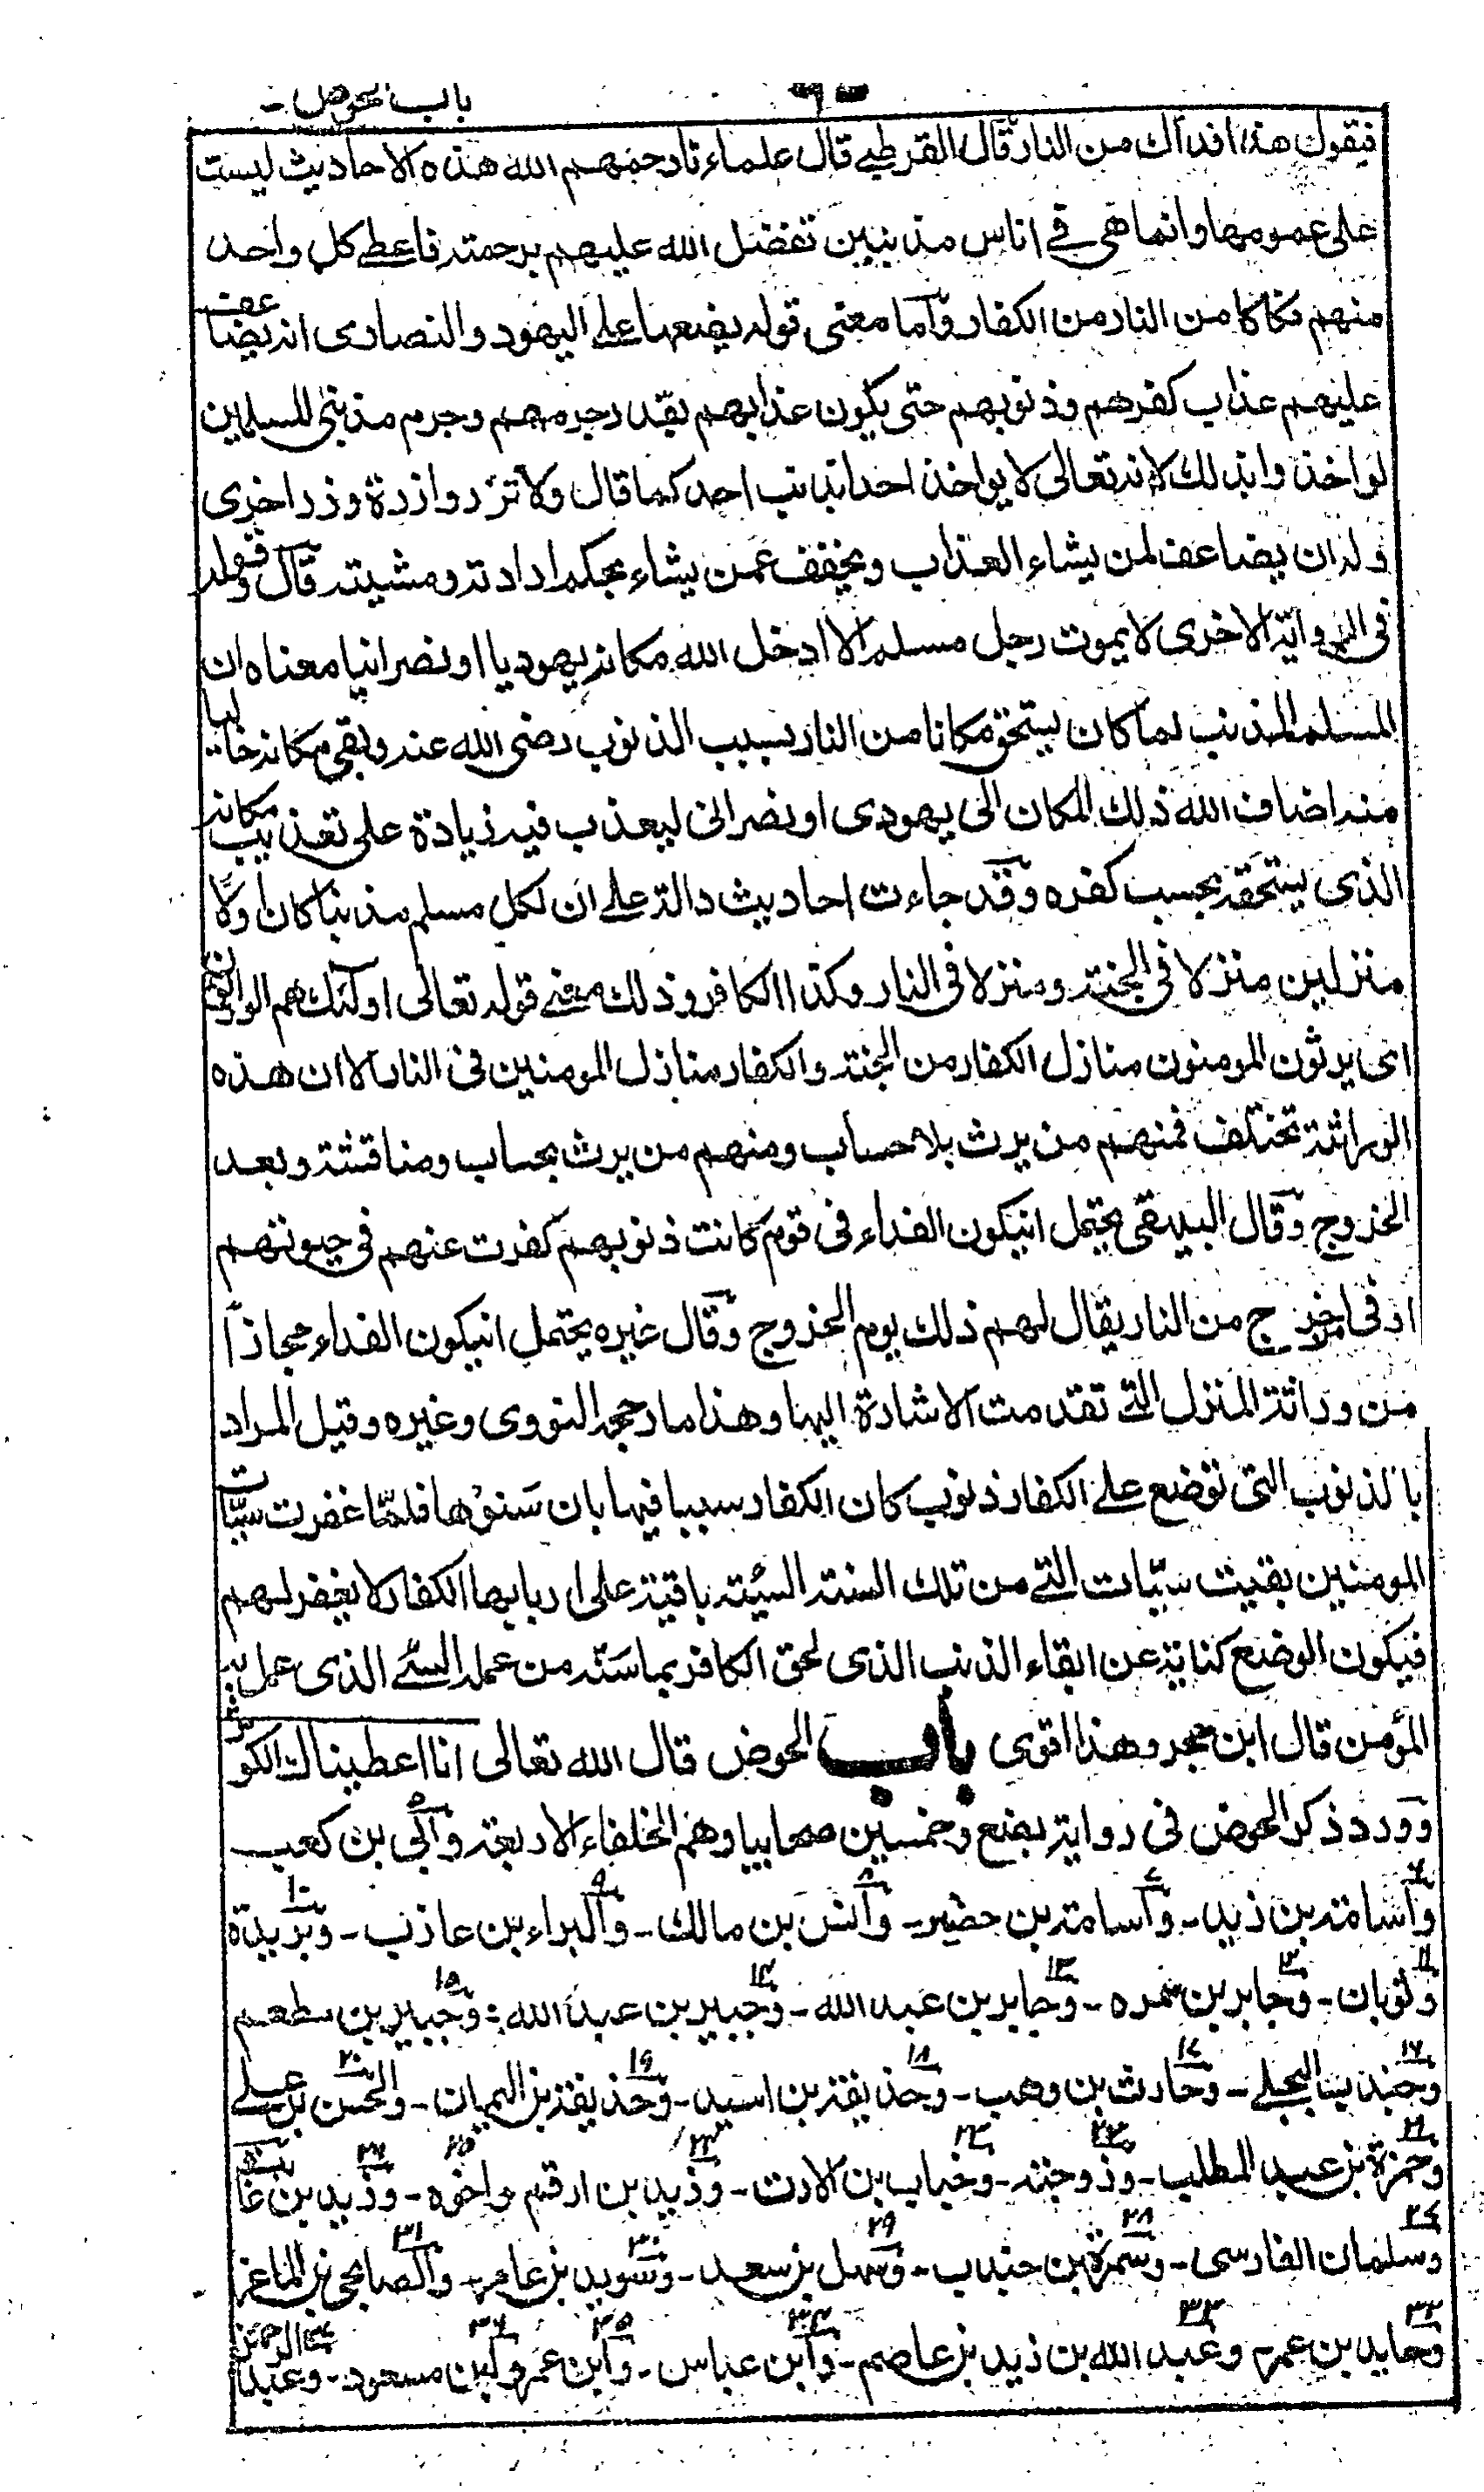 باب الحوض -
فيقول هذا افداك من النار قال القرطبے قال علماءنا رحمهم الله هذه الاحاديث ليست
على عمومها وانما هى فے اناس مذنبين تفضل الله عليهم برحمته فاعطے كل واحد
منهم فكاكا من النار من الكفار وآما معنى قوله يضعها علے اليهود والنصارى انه يضاعف
عليهم عذاب كفرهم وذنوبهم حتى يكون عذابهم بقدر جرمهم وجرم مذنبى المسلمين
لو اخذوا بذلك لانه تعالى لا يواخذ احدا بذنب احد كما قال ولا تزر وازرة وزر اخرى
وله ان يضاعف لمن يشاء العذاب ويخفف عمن يشاء بحكم ارادته ومشيته قال وقوله
فى الرواية الاخرى لا يموت رجل مسلم الا ادخل الله مكانه يهوديا او نصرانيا معناه ان
المسلم المذنب لما كان يستحق مكانا من النار بسبب الذنوب رضى الله عنه وبقى مكانه خاليا
منه اضاف الله ذلك المكان الى يهودى او نصرانى ليعذب فيه زيادة على تعذيب مكانه
الذى يستحقه بحسب كفره وقد جاءت احاديث دالة علے ان لكل مسلم مذنبا كان او لا
منزلين منزلا فى الجنة ومنزلا فى النار وكذا الكافر وذلك معنے قوله تعالى اولئك هم الوارثون
اى يرثون المومنون منازل الكفار من الجنة والكفار منازل المومنين فى النار الا ان هذه
الوراثة تختلف فمنهم من يرث بلا حساب ومنهم من يرث بحساب ومناقشة وبعد
الخروج وقال البيهقى يحتمل انيكون الفداء فى قوم كانت ذنوبهم كفرت عنهم فى حيوتهم
او فى من اخرج من النار يقال لهم ذلك يوم الخروج وقال غيره يحتمل انيكون الفداء مجازاً
من وراثة المنزل التے تقدمت الاشارة اليها وهذا ما رجحه النووى وغيره وقيل المراد
بالذنوب التى توضع علے الكفار ذنوب كان الكفار سببا فيها بان سَنوْها فلمّا غفرت سيّات
المومنين بقيت سيّات التے من تلك السنة السيئة باقية على اربابها الكفار لا يغفر لهم
فيكون الوضع كناية عن ابقاء الذنب الذى لحق الكافر بما سَنّه من عمله السئے الذى عمل به
المؤمن قال ابن حجر وهذا اقوى باب الحوض قال الله تعالى انا اعطيناك الكوثر
وورد ذكر الحوض فى رواية بضع وخمسين صحابيا وهم الخلفاء الاربعة وأبى بن كعب
وأسامة بن زيد - وأسامة بن حضير - وأنس بن مالك - والبراء بن عازب - وبريدة
وثوبان - وجابر بن سمره - وجابر بن عبد الله - وجبير بن عبد الله : وجبير بن مطعم
وجندب البجلے - وحارث بن وهب - وحذيفة بن اسيد - وحذيفة بن اليمان - والحسن بن علے
وحمزة بن عبد المطلب - وزوجته - وخباب بن الارت - وزيد بن ارقم واخوه - وزيد بن
وسلمان الفارسى - وسمرة بن جندب - وسهل بن سعد - وسويد بن عامر - والصنابحى بن
بن عمرو وعبد الله بن زيد بن عاصم - وابن عباس - وابن عمر وابن مسعود - وعبد الرحمن